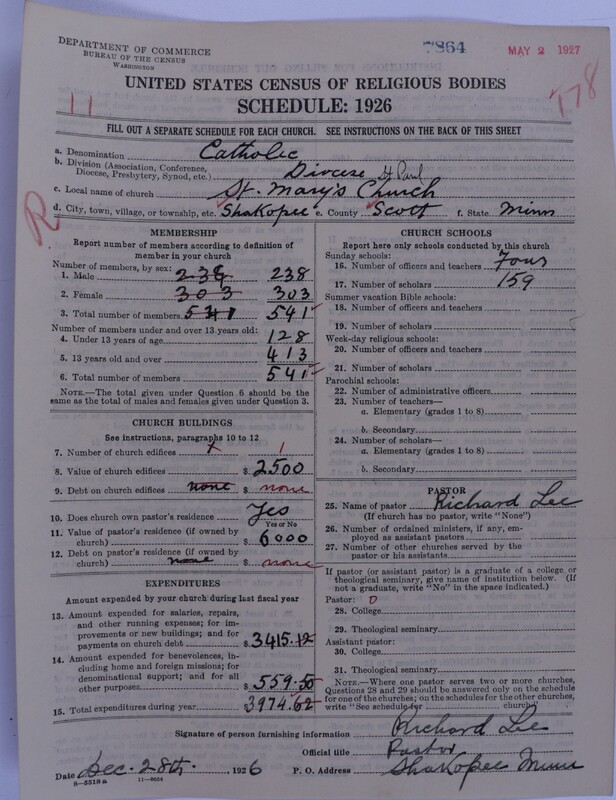 DEPARTMENT OF COMMERCE
BUREAU OF THE CENSUS
WASHINGTON
7864
MAY 2 1927
11
178
UNITED STATES CENSUS OF RELIGIOUS BODIES
SCHEDULE: 1926
FILL OUT A SEPARATE SCHEDULE FOR EACH CHURCH. SEE INSTRUCTIONS ON THE BACK OF THIS SHEET
a. Denomination Catholic
b. Division (Association, Conference, Diocese, Presbytery, Synod, etc.) Diocese St Paul
c. Local name of church St. Mary's Church
d. City, town, village, or township, etc. Shakopee e. County Scott f. State Minn
R
MEMBERSHIP
Report number of members according to definition of
member in your church
Number of members, by sex:
1. Male 238 238
2. Female 303 303
3. Total number of members 541 541
Number of members under and over 13 years old:
4. Under 13 years of age 128
5. 13 years old and over 413
6. Total number of members 541
NOTE.—The total given under Question 6 should be
the same as the total of males and females given under Question 3.
CHURCH BUILDINGS
See instructions, paragraphs 10 to 12
7. Number of church edifices 1 1
8. Value of church edifices $ 2500
9. Debt on church edifices none $ none
10. Does church own pastor's residence Yes
Yes or No
11. Value of pastor's residence (if owned by
church) $ 6000
12. Debt on pastor's residence (if owned by
church) none $ none
EXPENDITURES
Amount expended by your church during last fiscal year
13. Amount expended for salaries, repairs,
and other running expenses; for im-
provements or new buildings; and for
payments on church debt $ 3415.12
14. Amount expended for benevolences, in-
cluding home and foreign missions; for
denominational support; and for all
other purposes $ 559.50
15. Total expenditures during year 3974.62
CHURCH SCHOOLS
Report here only schools conducted by this church
Sunday schools:
16. Number of officers and teachers Four
17. Number of scholars 159
Summer vacation Bible schools:
18. Number of officers and teachers
19. Number of scholars
Week-day religious schools:
20. Number of officers and teachers
21. Number of scholars
Parochial schools:
22. Number of administrative officers
23. Number of teachers—
a. Elementary (grades 1 to 8)
b. Secondary
24. Number of scholars—
a. Elementary (grades 1 to 8)
b. Secondary
PASTOR
25. Name of pastor Richard Lee
(If church has no pastor, write "None")
26. Number of ordained ministers, if any, em-
ployed as assistant pastors
27. Number of other churches served by the
pastor or his assistants
If pastor (or assistant pastor) is a graduate of a college or
theological seminary, give name of institution below. (If
not a graduate, write "No" in the space indicated.)
Pastor: 0
28. College
29. Theological seminary
Assistant pastor:
30. College
31. Theological seminary
NOTE.—Where one pastor serves two or more churches,
Questions 28 and 29 should be answered only on the schedule
for one of the churches; on the schedules for the other churches,
write "See schedule for church."
Signature of person furnishing information Richard Lee
Official title Pastor
Date Dec. 28th, 1926 P. O. Address Shakopee Minn
8—5518a 11—8604